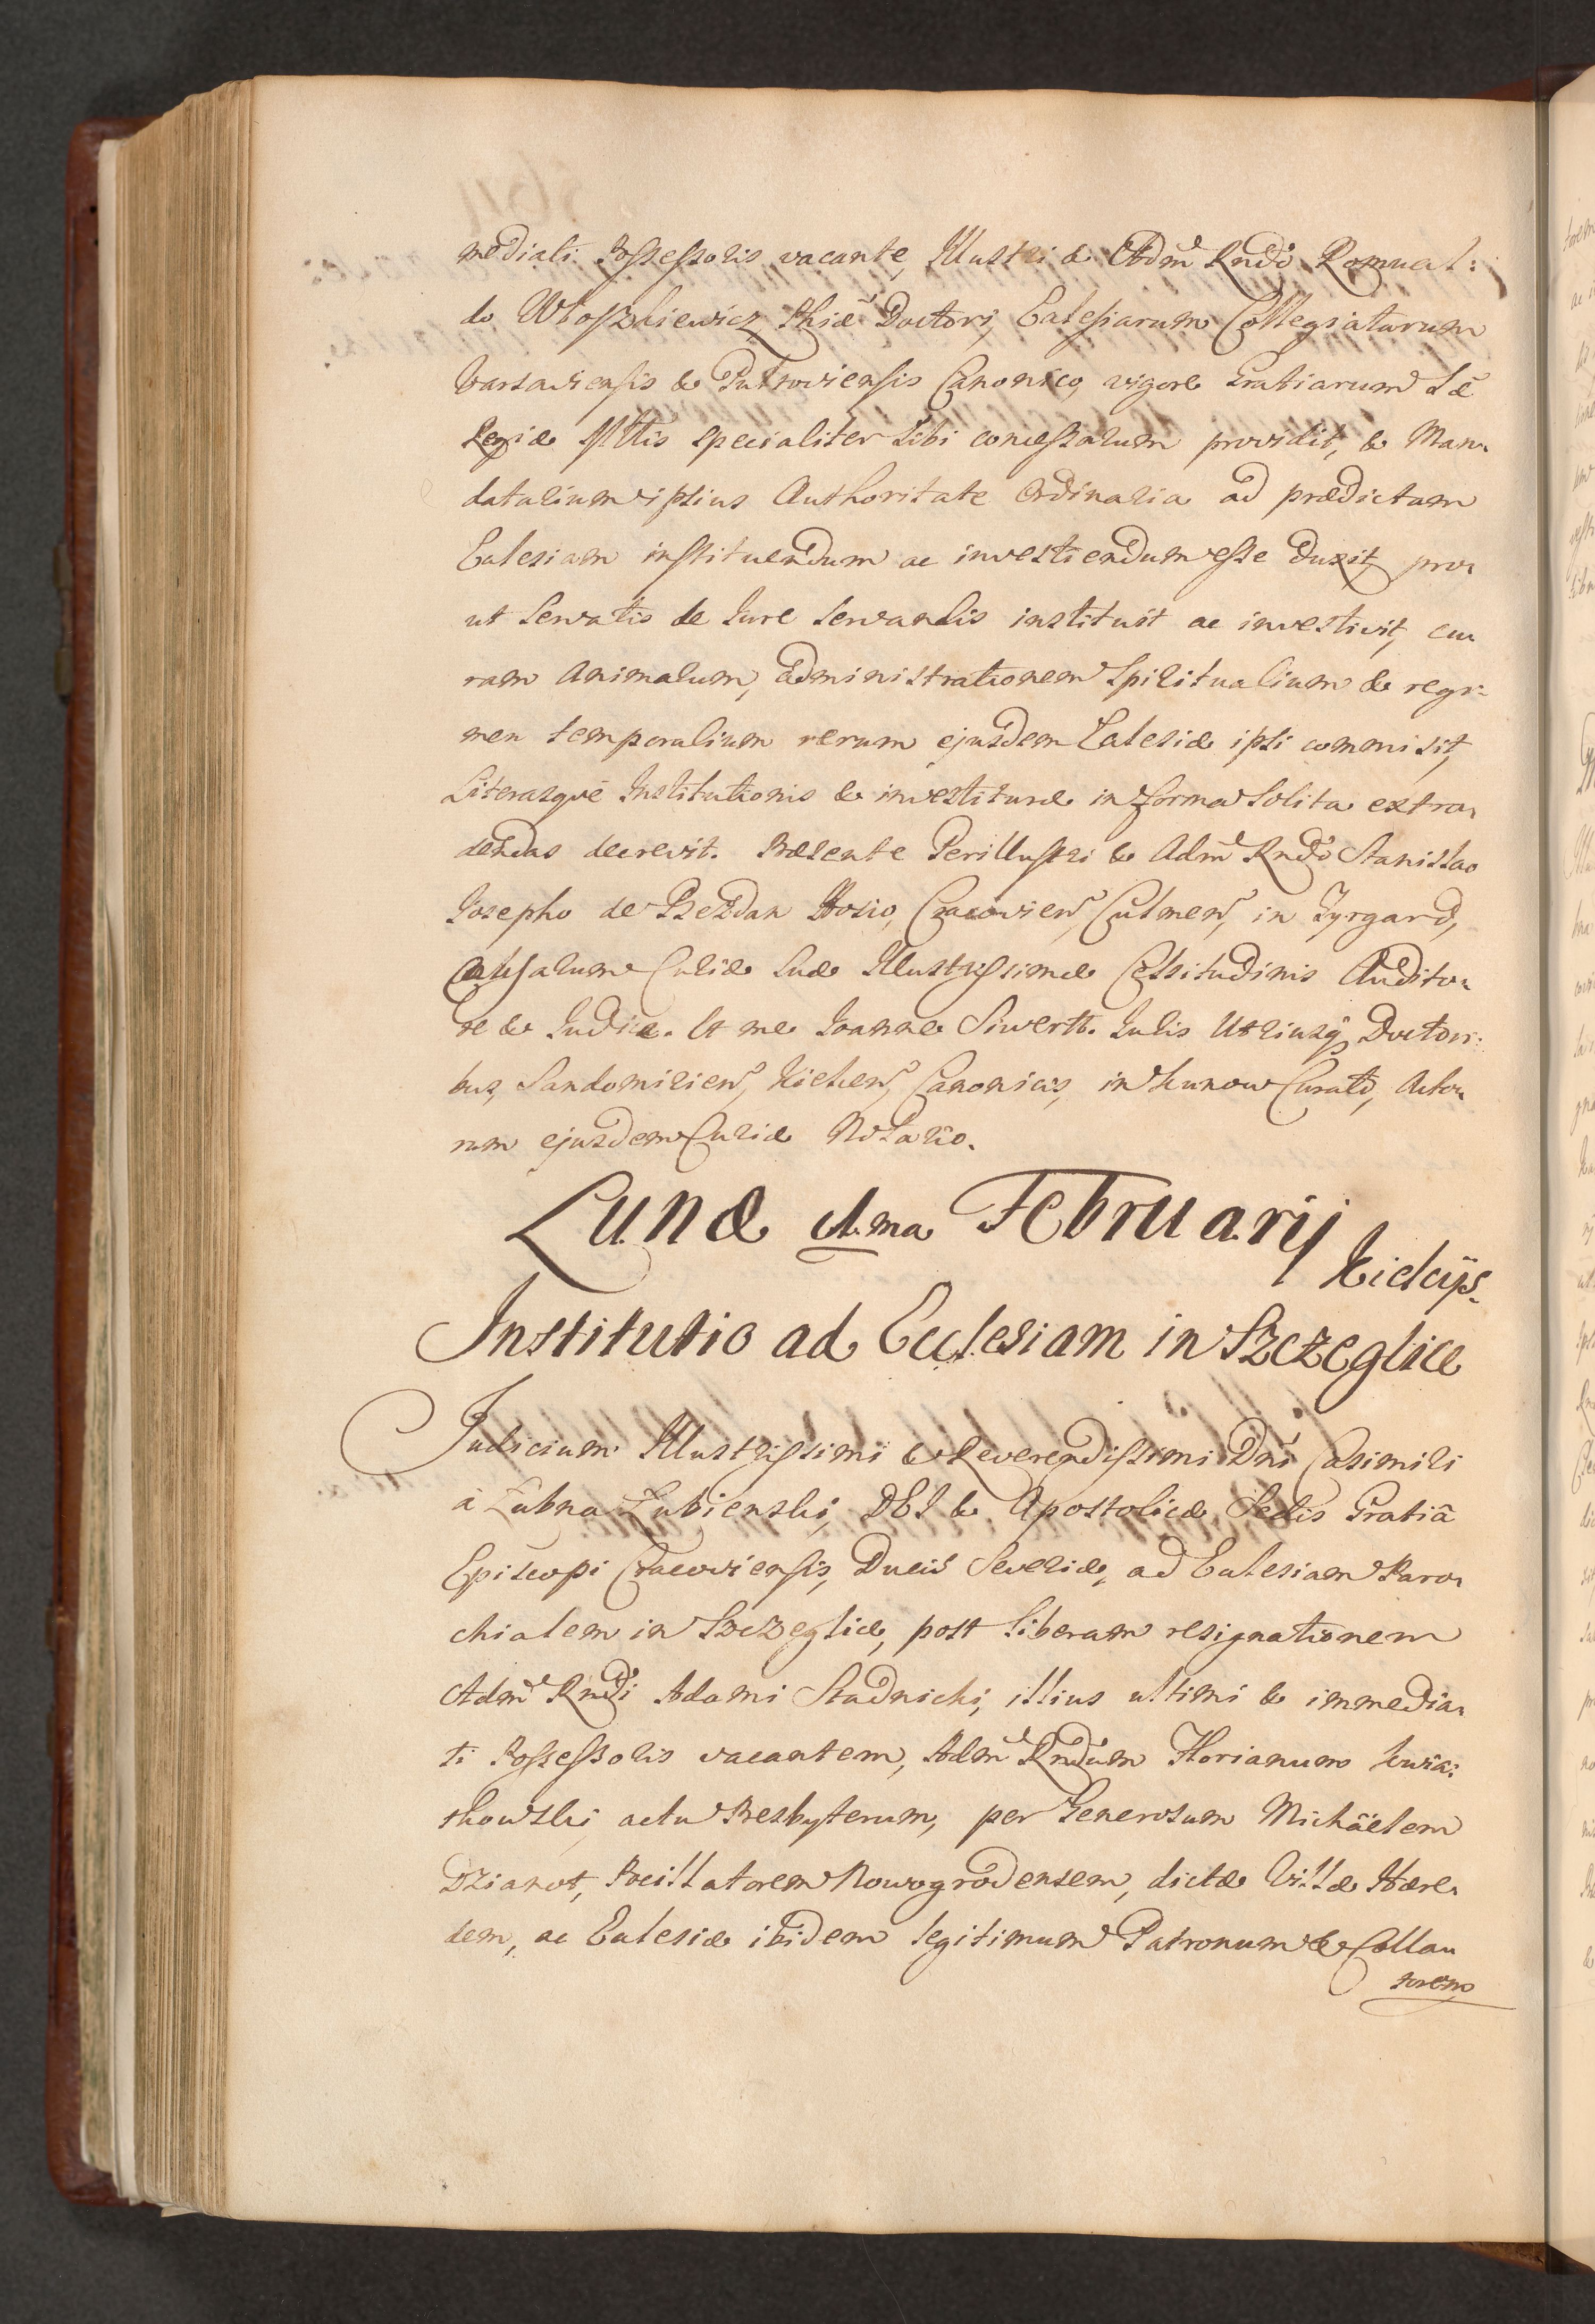 mediati Possessoris vacante, Illustri & Admd Rndo Romual:
do Włoszkiewicz Phiæ Doctori, Ecclesiarum Collegiatarum
Varsaviensis & Canonico, vigore Gratiarum Sæ
Regiæ Mttis specialiter sibi concessarum providit, & Man-
datarium ipsius Authoritate Ordinaria ad prædictam
Ecclesiam instituendum ac investiendum esse duxit, pro-
ut servatis de Jure servandis instituit ac investivit, cu-
ram Animarum, administrationem Spiritualium & regi-
men temporalium rerum ejusdem Ecclesiæ ipsi commisit,
Literasque Institutionis & investituræ in forma solita extra-
dendas decrevit. Præsente Perillustri & Admd Rndo Stanislao
Josepho de Bezdan Hosio, Cracovien, Culmen, in
Causarum Curiæ Suæ Illustrissimæ Celsitudinis Audito-
re & Judice. Et me Joanne Siwertt. Juris Utriusq Doctori:
bus, Sandomirien, Kielcen, Canonicis, in Kunow Curato, Acto-
rum ejusdem Curiæ Notario.
Lunæ 1.ma Februarij
Kielcijs.
Institutio ad Ecclesiam in Szczeglice
Judicium Illustrissimi & Reverendissimi Dni Casimiri
à Łubna Łubienski, DEI & Apostolicæ Sedis Gratiâ
Episcopi Cracoviensis, Ducis Severiæ, ad Ecclesiam Paro-
chialem in Szczeglice, post liberam resignationem
Admd Rndi Adami Stadnicki, illius ultimi & immedia-
ti Possessoris vacantem, Admd Rndum Florianum Kwia:
tkowski actu Presbyterum, per Generosum Michäelem
Dzianot, Pocillatorem Nowogrodensem, dictæ Villæ Hære-
dem, ac Ecclesiæ ibidem legitimum Patronum & Colla-
torem